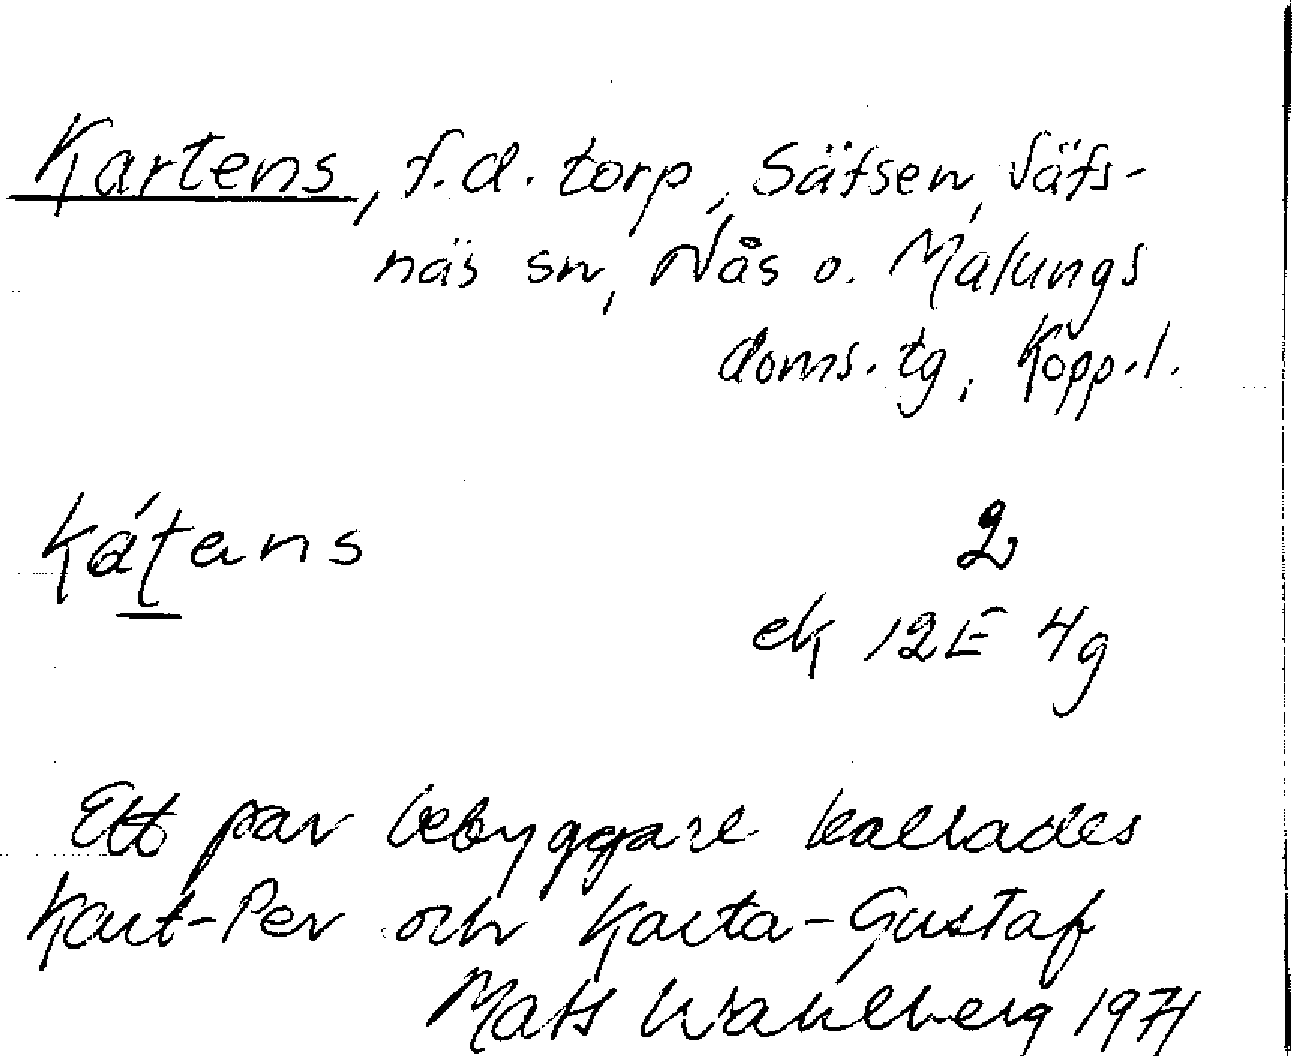 Kartens, f.d. torp, Säfsen, Säfs-
näs sn, Nås o. Malungs
doms. tg, Kopp. l.
kátans
2
ek 12E 4g
Ett par bebyggare kallades
Kart-Per och Karta-Gustaf
Mats Wahlberg 1971